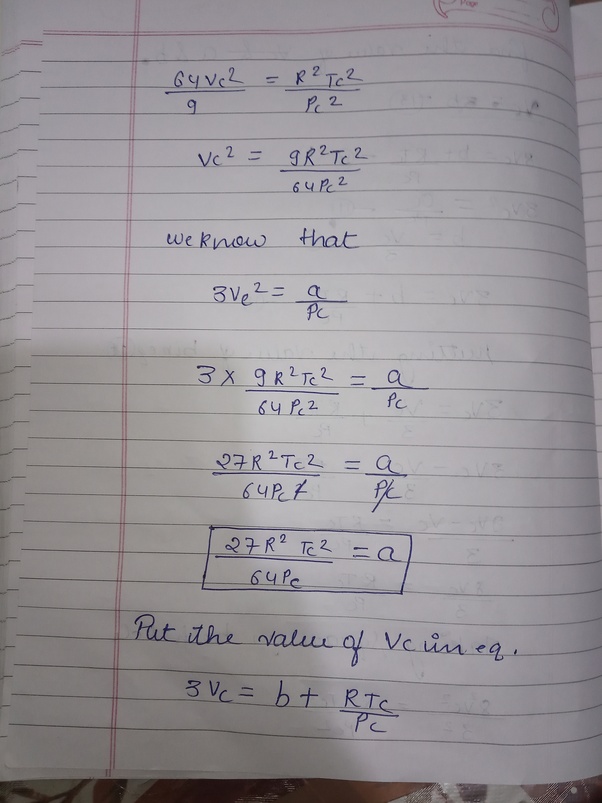 64Vc²/9 = R²Tc²/Pc²
Vc² = 9R²Tc²/64Pc²
we know that
3Vc² = a/Pc
3 × 9R²Tc²/64Pc² = a/Pc
27R²Tc²/64Pc² = a/Pc
27R² Tc²/64Pc = a
Put the value of Vc in eq.
3Vc = b + RTc/Pc